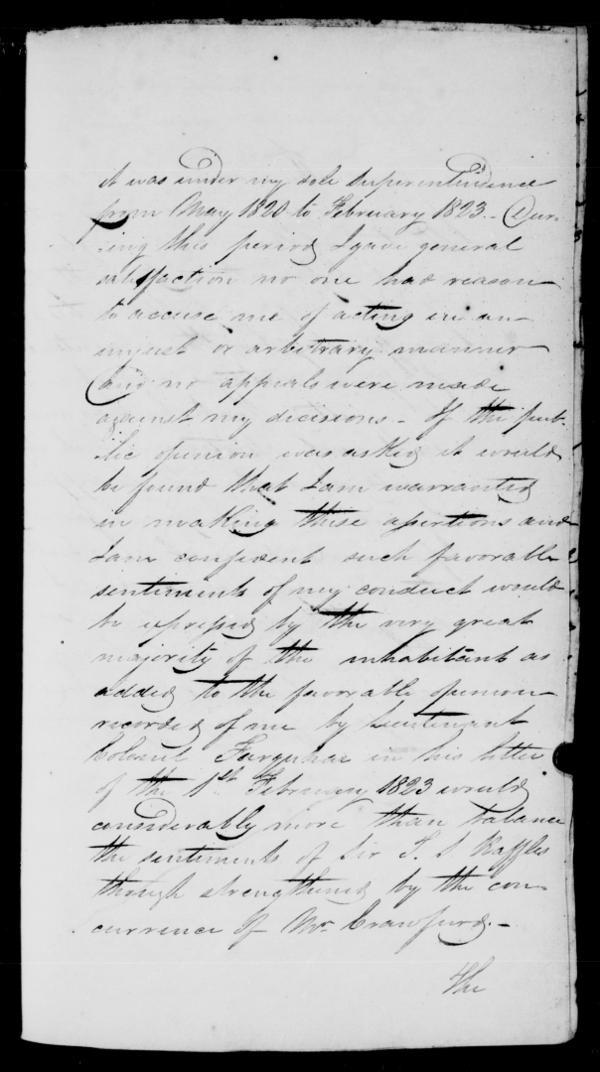 it was under my sole Superentendence
from May 1820 to February 1823. - Dur-
-ing this period I gave general
satisfaction no one had reason
to accuse me of acting in an
unjust or arbitrary manner
and no appeals were made
against my decisions - If the pub-
-lic opinion was asked it would
be found that I am warranted
in making these assertions and
I am confident such favorable
sentiments of my conduct would
be expressed by the very great
majority of the inhabitants as
added to the favorable opinion
recorded of me by Lieutenant
Colonel Farquhar in his letter
of the 1st February 1823 would
considerably more than balance
the sentiments of Sir T. S. Raffles
though strengthened by the con-
currence of Mr. Crawfurd. -
The